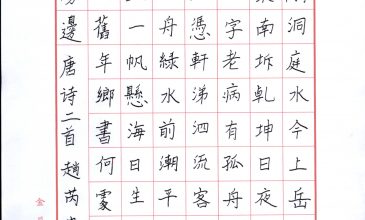 洞庭水今上岳
南坼乾坤夜
字老病有孤舟
憑軒涕泗流客
舟綠水前潮平
一帆懸海日生
舊年鄉書何處
邊唐诗二首趙芮
金